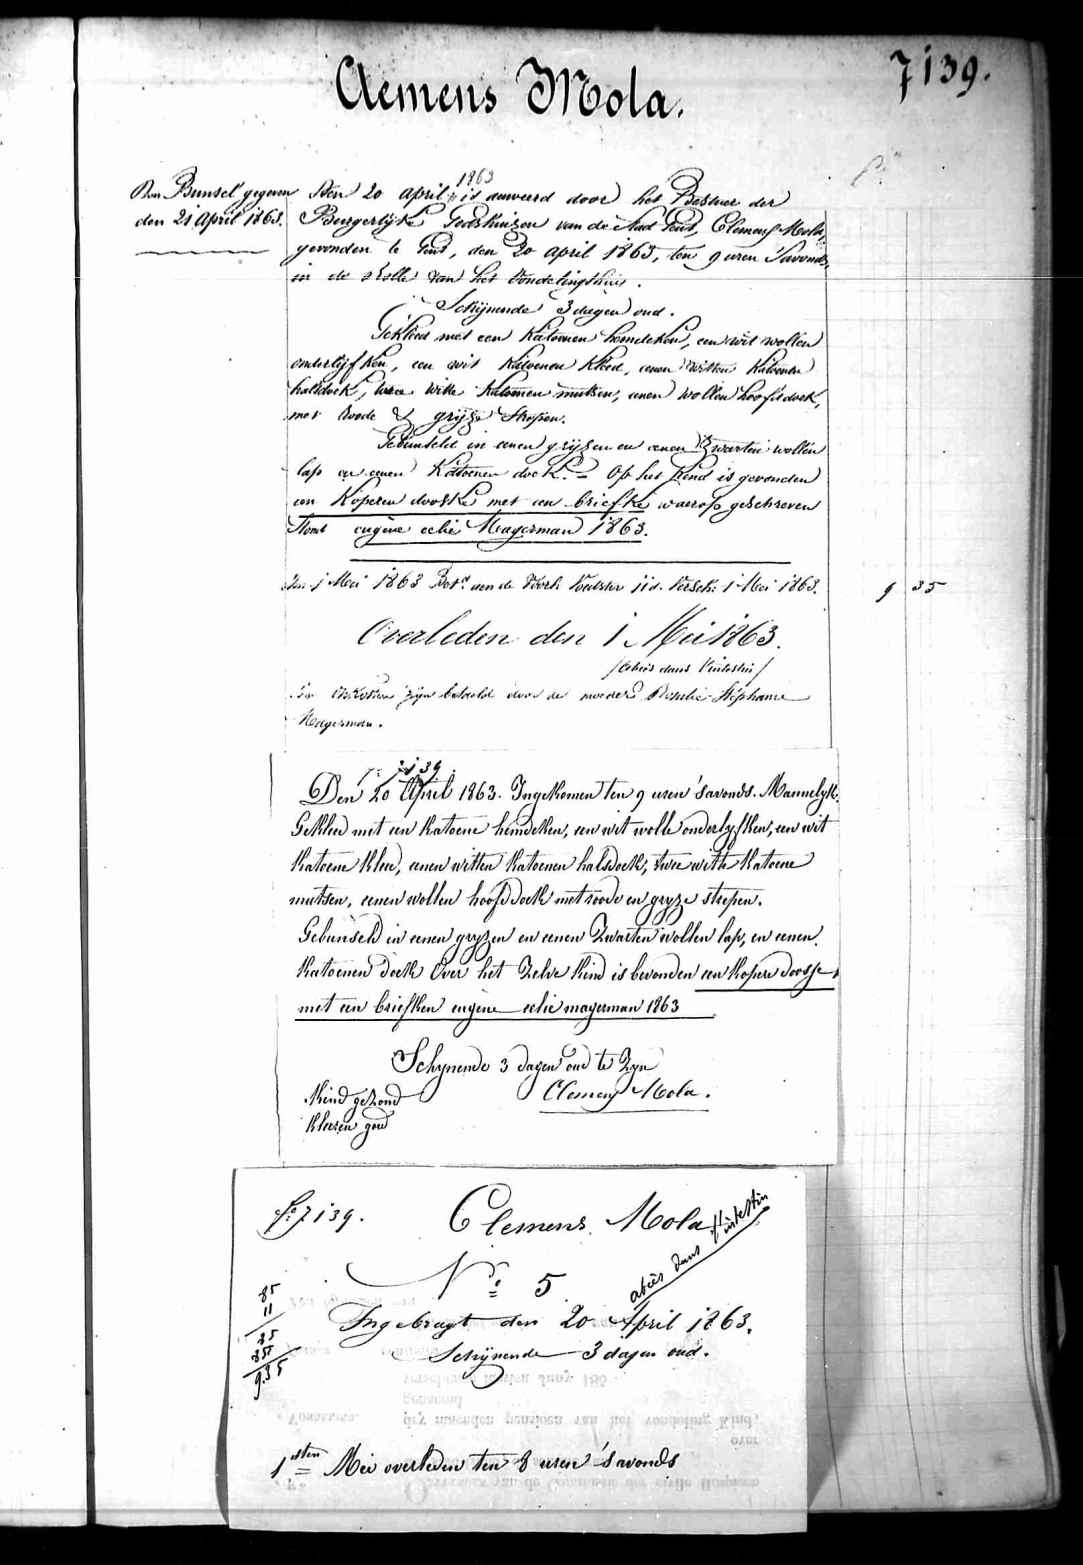 Clemens Mola.
7139.
Den Bunsel gegeven
den 21 April 1863.
1863
Den 20 april is aenveerd door het Bestuer der
Burgerlijke Godshuizen van de Stad Gend, Clemens Mola,
gevonden te Gend, den 20 april 1863, ten 9 uren 's avonds,
in de rolle van het Vondelingshuis.
Schijnende 3 dagen oud.
Gekleed met een Katoenen hemdeken, een wit wollen
onderlijfken, een wit Katoenen Kleed, eenen witten Katoenen
halsdoek, twee witte Katoenen mutsen, eenen wollen hoofddoek,
met roode & grijze strepen.
Gebunseld in eenen grijzen en eenen zwarten wollen
lap en eenen Katoenen doek. – Op het Kind is gevonden
een Koperen dooske met een briefke waerop geschreven
stond eugène eelie Magerman 1863.
1 Mei 1863 aen de 1 Mei 1863.
9 35
Overleden den 1 Mei 1863.
/abcès dans l'intestin/
De onkosten zijn betaeld door de moeder Rosalie Stéphanie
Magerman.
7139
Den 20 April 1863. Ingekomen ten 9 uren 's avonds. Mannelyk.
Gekleed met een katoene hemdeken, een wit wolle onderlyfken, een wit
katoene kleed, eenen witten katoenen halsdoek, twee witte katoene
mutsen, eenen wollen hoofddoek met roode en gryze strepen.
Gebunseld in eenen gryzen en eenen Zwarten wollen lap, en eenen
katoenen doek Over het Zelve kind is bevonden een kopere doosje
met een briefken eugène eelie magerman 1863
Schynende 3 dagen oud te Zyn
Kind gezond
Clemens Mola.
kleeren goed
f° 7139.
Clemens Mola
abcès dans l'intestin
N° 5
85
11
Ingebragt den 20 April 1863.
85
Schijnende 3 dagen oud.
9.35
1sten Mei overleden ten 8 uren 's avonds